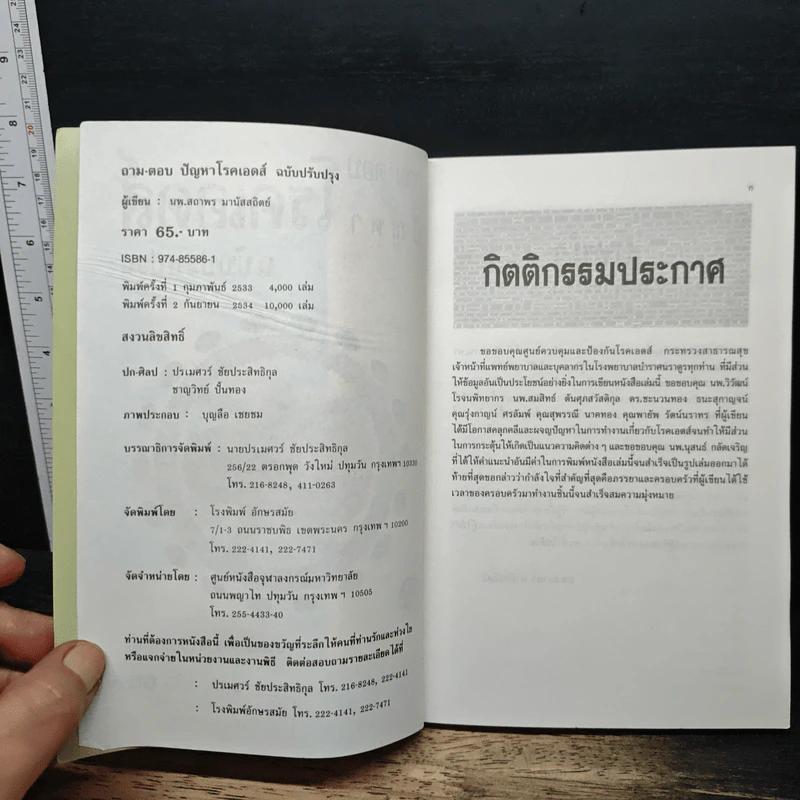 ถาม-ตอบ ปัญหาโรคเอดส์ ฉบับปรับปรุง
ผู้เขียน : นพ.สถาพร มานัสสถิตย์
ราคา 65.- บาท
ISBN : 974-85586-1
พิมพ์ครั้งที่ 1 กุมภาพันธ์ 2533 4,000 เล่ม
พิมพ์ครั้งที่ 2 กันยายน 2534 10,000 เล่ม
สงวนลิขสิทธิ์
ปก-ศิลป : ปรเมศวร์ ชัยประสิทธิกุล
ชาญวิทย์ ปั้นทอง
ภาพประกอบ : บุญลือ เชยชม
บรรณาธิการจัดพิมพ์ : นายปรเมศวร์ ชัยประสิทธิกุล
256/22 ตรอกพุต วังใหม่ ปทุมวัน กรุงเทพฯ 10330
โทร. 216-8248, 411-0263
จัดพิมพ์โดย : โรงพิมพ์ อักษรสมัย
7/1-3 ถนนราชบพิธ เขตพระนคร กรุงเทพฯ 10200
โทร. 222-4141, 222-7471
จัดจำหน่ายโดย : ศูนย์หนังสือจุฬาลงกรณ์มหาวิทยาลัย
ถนนพญาไท ปทุมวัน กรุงเทพฯ 10505
โทร. 255-4433-40
ท่านที่ต้องการหนังสือนี้ เพื่อเป็นของขวัญที่ระลึกให้คนที่ท่านรักและห่วงใย
หรือแจกจ่ายในหน่วยงานและงานพิธี ติดต่อสอบถามรายละเอียดได้ที่
: ปรเมศวร์ ชัยประสิทธิกุล โทร. 216-8248, 222-4141
: โรงพิมพ์อักษรสมัย โทร. 222-4141, 222-7471
กิตติกรรมประกาศ
ขอขอบคุณศูนย์ควบคุมและป้องกันโรคเอดส์ กระทรวงสาธารณสุข
เจ้าหน้าที่แพทย์พยาบาลและบุคลากรในโรงพยาบาลบำราศนราดูรทุกท่าน ที่มีส่วน
ให้ข้อมูลอันเป็นประโยชน์อย่างยิ่งในการเขียนหนังสือเล่มนี้ ขอขอบคุณ นพ.วิวัฒน์
โรจนพิทยากร นพ.สมสิทธ์ ตันศุภสวัสดิกุล ดร.ชะนวนทอง ธนะสุกาญจน์
คุณรุ่งกาญน์ ศรลัมพ์ คุณสุพรรณี นาคทอง คุณพายัพ รัตน์นราทร ที่ผู้เขียน
ได้มีโอกาสคลุกคลีและผจญปัญหาในการทำงานเกี่ยวกับโรคเอดส์จนทำให้มีส่วน
ในการกระตุ้นให้เกิดเป็นแนวความคิดต่าง ๆ และขอขอบคุณ นพ.นุสนธ์ กลัดเจริญ
ที่ได้ให้คำแนะนำอันมีค่าในการพิมพ์หนังสือเล่มนี้จนสำเร็จเป็นรูปเล่มออกมาได้
ท้ายที่สุดขอกล่าวว่ากำลังใจที่สำคัญที่สุดคือภรรยาและครอบครัวที่ผู้เขียนได้ใช้
เวลาของครอบครัวมาทำงานชิ้นนี้จนสำเร็จสมความมุ่งหมาย